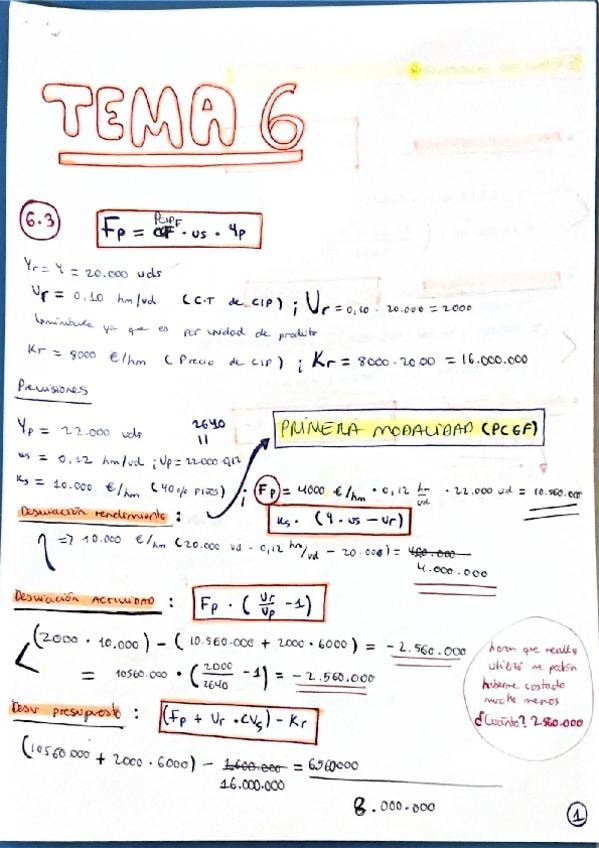 TEMA 6
6.3
Fp = PCIPF · us · Yp
Yr = Y = 20.000 uds
Ur = 0,10 hm/ud (C.T de CIP) ; Ur = 0,10 · 20.000 = 2000
ya que es por unidad de produto
Kr = 8000 €/hm (Precio de CIP) ; Kr = 8000 · 20.00 = 16.000.000
Previsiones
Yp = 22.000 uds
2640
11
PRIMERA MODALIDAD (PCGF)
us = 0,12 hm/ud ; Up = 22000·0,12
Ks = 10.000 €/hm (40% PIZOS) ; Fp = 4000 €/hm · 0,12 hm/ud · 22.000 ud = 10.560.000
Desviación rendimiento : Ks · (Y · us - Ur)
=> 10.000 €/hm (20.000 ud · 0,12 hm/ud - 20.00€) =
4.000.000
Desviación Actividad : Fp · (Ur/Up - 1)
(2000 · 10.000) - (10.560.000 + 2000 · 6000) = -2.560.000
= 10560.000 · (2000/2640 - 1) = -2.560.000
horas que really
utilicé me podían
haberme costado
mucho menos
¿Cuánto? 2.560.000
Desv presupuesto : (Fp + Ur · CVs) - Kr
(10560.000 + 2000 · 6000) - 1.600.000 = 6560000
16.000.000
8.000.000
1